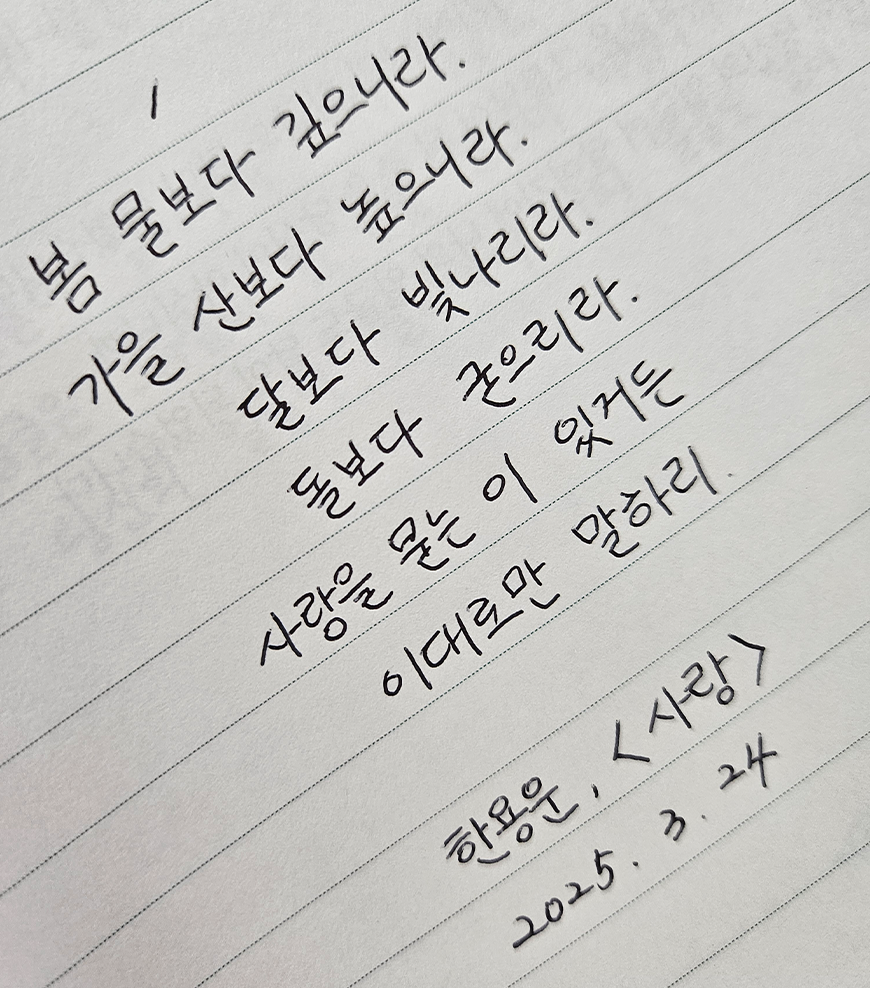 봄 물보다 깊으니라.
가을 산보다 높으니라.
달보다 빛나리라.
돌보다 굳으리라.
사랑을 묻는 이 있거든
이대로만 말하리.
한용운, <사랑>
2025. 3. 24